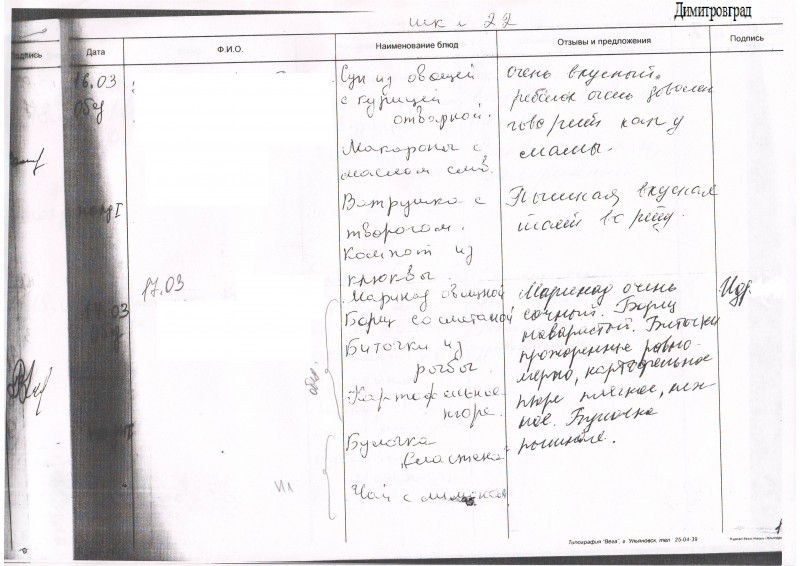 Димитровград
шк № 22
Подпись Дата Ф.И.О. Наименование блюд Отзывы и предложения Подпись
16.03 Суп из овощей очень вкусный.
обед с курицей ребёнок очень доволен
отварной. говорит как у
Макароны с мамы.
маслом слив.
Ватрушка с Пышная вкусная
творогом. тает во рту.
Компот из
клюквы.
17.03
Маринад овощной Маринад очень
Борщ со сметаной сочный. Борщ
Биточки из наваристый. Биточки
рыбы. прожаренные равно-
Картофельное мерно, картофельное
пюре. пюре мягкое, неж-
обед. ное. Булочка
Булочка пышная.
"Сластёна"
Чай с лимоном
Типография "Вега", г. Ульяновск, тел. 25-04-39